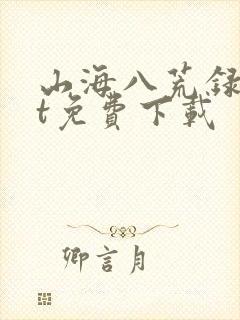 山海八荒録
t免費下載
卿言月